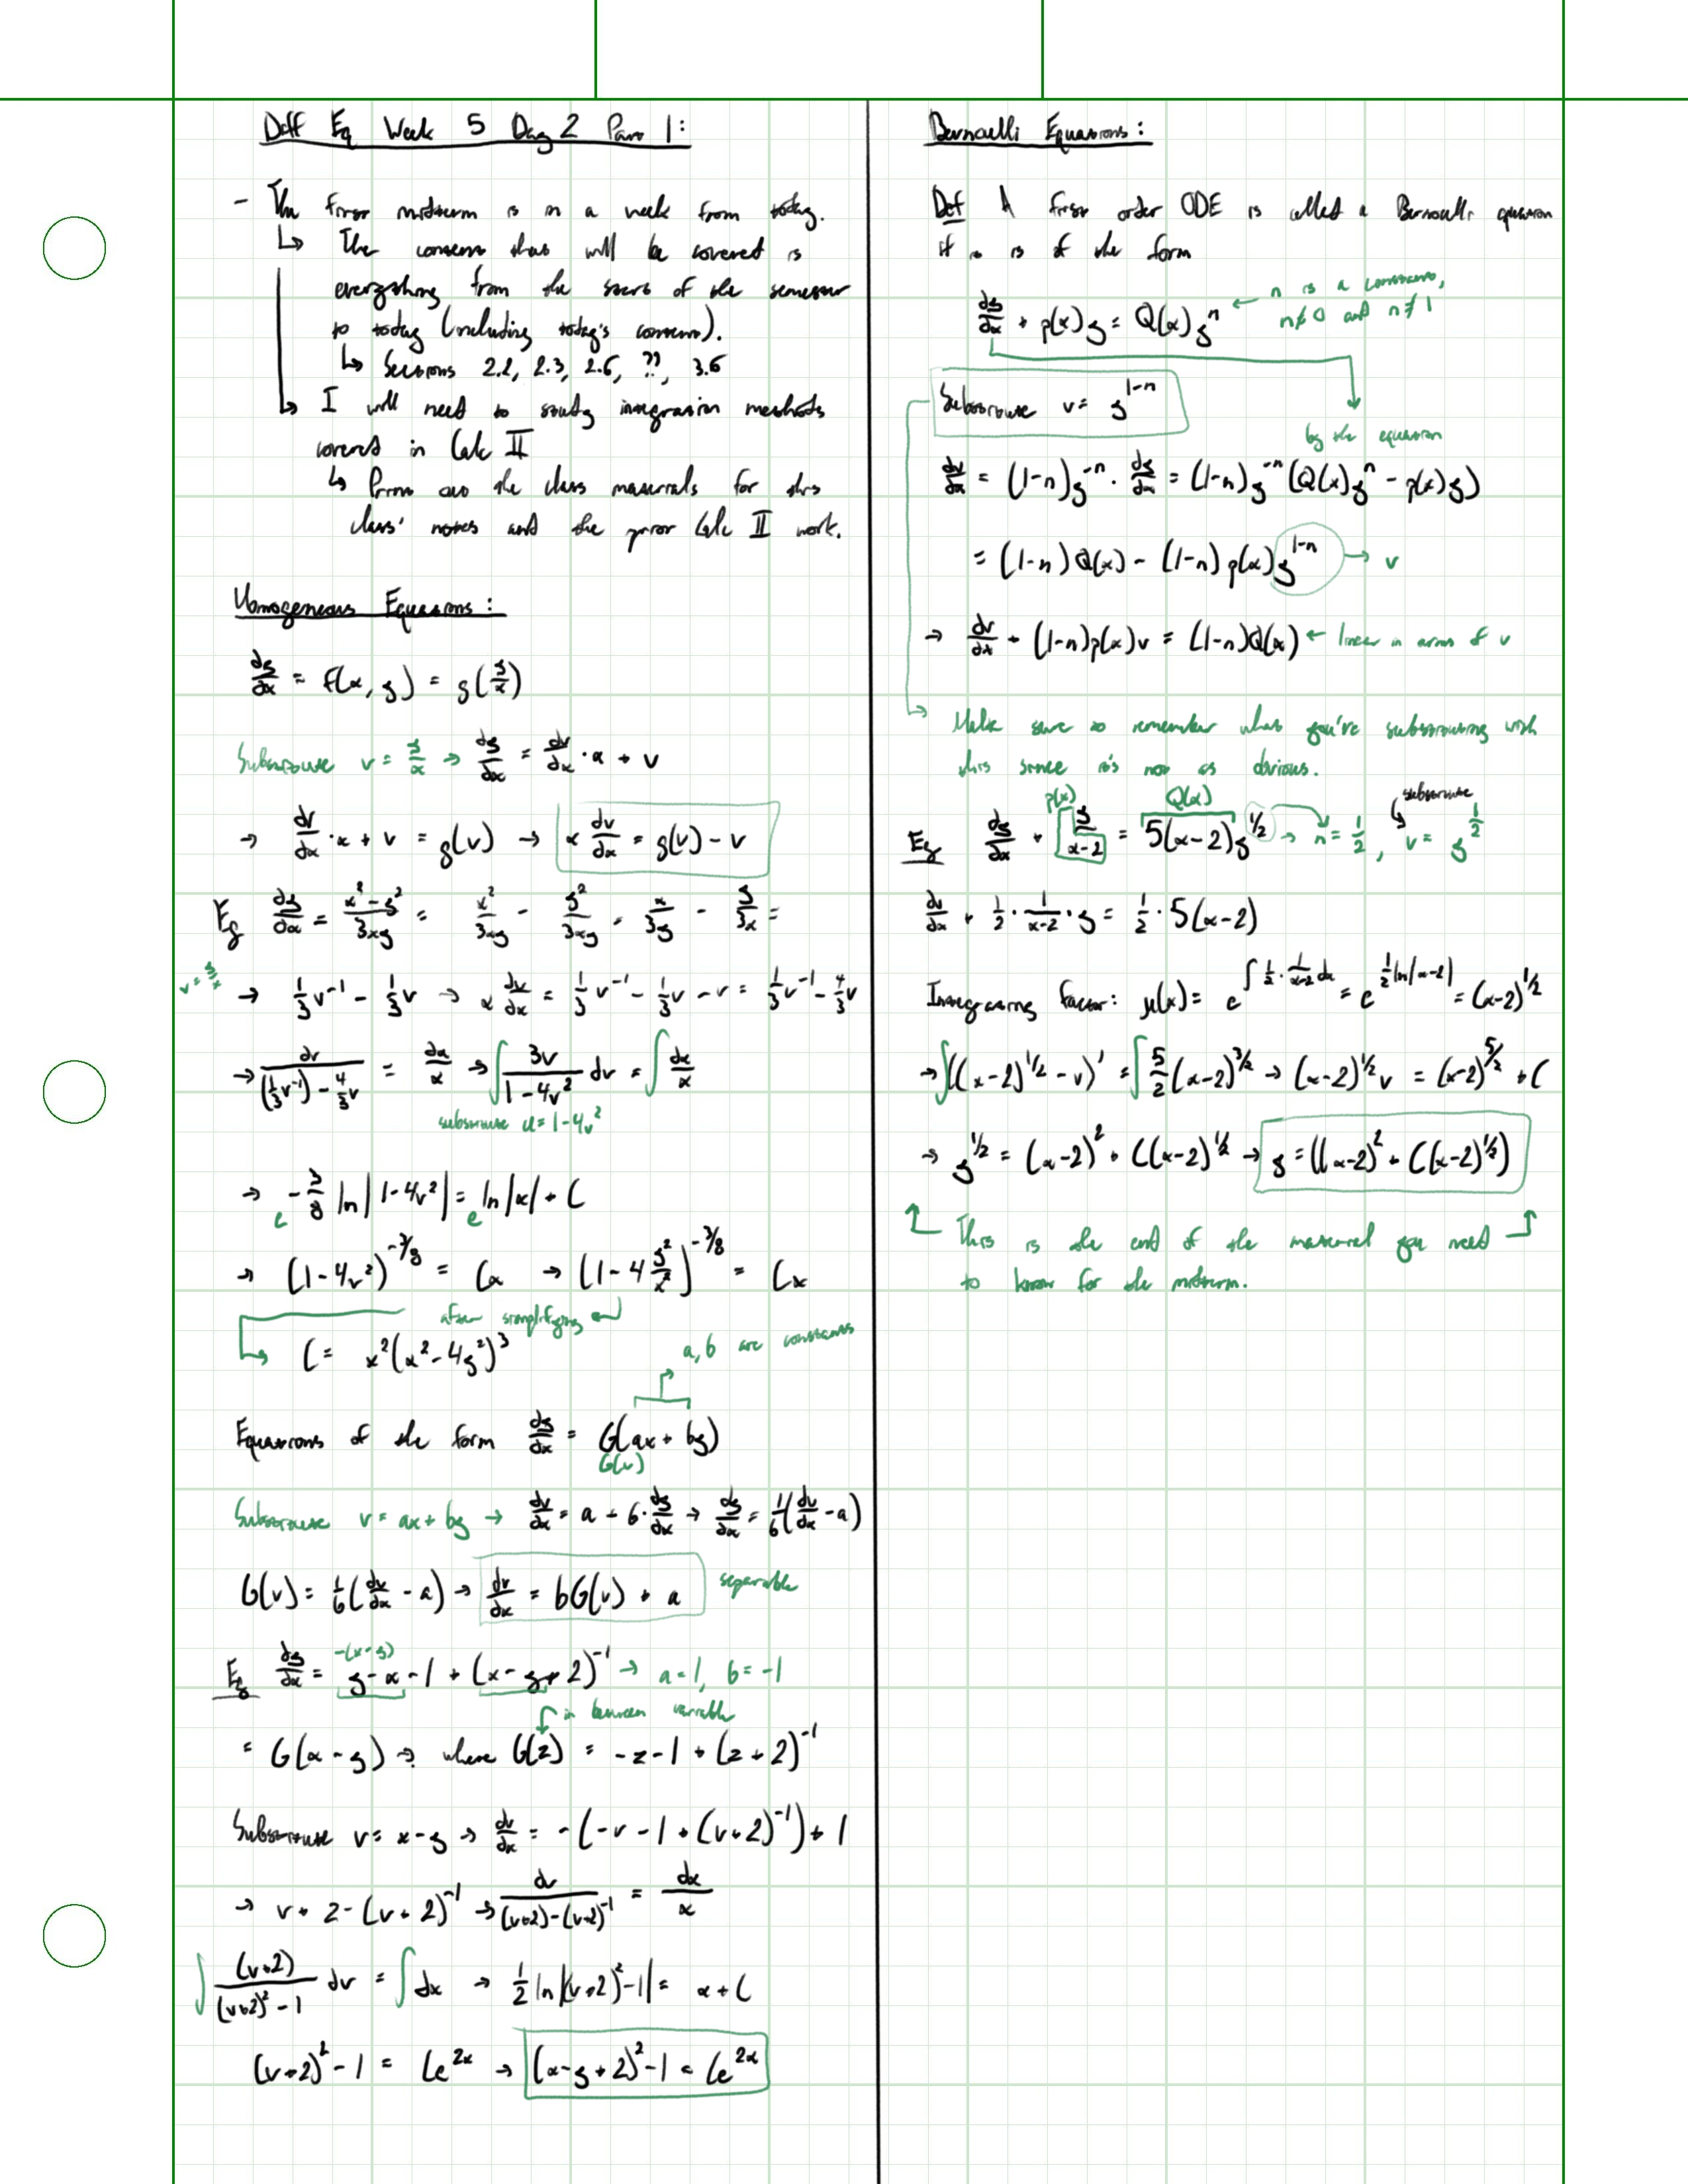 Diff Eq Week 5 Day 2 Part 1:
- The first midterm is in a week from today.
↳ The content that will be covered is
everything from the start of the semester
to today (including today's content).
↳ Sections 2.2, 2.3, 2.6, ??, 3.6
↳ I will need to study integration methods
covered in Calc II
↳ Print out the class materials for this
class' notes and the prior Calc II work.
Homogeneous Equations:
dy/dx = f(x, y) = g(y/x)
Substitute v = y/x → dy/dx = dv/dx · x + v
→ dv/dx · x + v = g(v) → x dv/dx = g(v) - v
Eg dy/dx = (x² - y²)/3xy = x²/3xy - y²/3xy = x/3y - y/3x =
v = y/x → 1/3 v⁻¹ - 1/3 v → x dv/dx = 1/3 v⁻¹ - 1/3 v - v = 1/3 v⁻¹ - 4/3 v
→ dv/((1/3 v⁻¹) - 4/3 v) = dx/x → ∫ 3v/(1 - 4v²) dv = ∫ dx/x
substitute u = 1 - 4v²
→ e -3/8 ln|1 - 4v²| = e ln|x| + C
→ (1 - 4v²)^(-3/8) = Cx → (1 - 4 y²/x²)^(-3/8) = Cx
after simplifying
↳ C = x²(x² - 4y²)³
a, b are constants
Equations of the form dy/dx = G(ax + by)
G(v)
Substitute v = ax + by → dv/dx = a + b · dy/dx → dy/dx = 1/b (dv/dx - a)
G(v) = 1/b (dv/dx - a) → dv/dx = bG(v) + a separable
-(x - y)
Eg dy/dx = y - x - 1 + (x - y + 2)⁻¹ → a = 1, b = -1
in between variable
= G(x - y) → where G(z) = -z - 1 + (z + 2)⁻¹
Substitute v = x - y → dv/dx = -(-v - 1 + (v + 2)⁻¹) + 1
→ v + 2 - (v + 2)⁻¹ → dv/((v+2) - (v+2)⁻¹) = dx/x
∫ (v+2)/((v+2)² - 1) dv = ∫ dx → 1/2 ln|(v+2)² - 1| = x + C
(v+2)² - 1 = Ce^(2x) → (x - y + 2)² - 1 = Ce^(2x)
Bernoulli Equations:
Def A first order ODE is called a Bernoulli equation
if it is of the form
dy/dx + p(x)y = Q(x)yⁿ ← n is a constant,
n≠0 and n≠1
Substitute v = y^(1-n)
by the equation
dv/dx = (1-n)y⁻ⁿ · dy/dx = (1-n)y⁻ⁿ(Q(x)yⁿ - p(x)y)
= (1-n)Q(x) - (1-n)p(x)y^(1-n) → v
→ dv/dx + (1-n)p(x)v = (1-n)Q(x) ← linear in terms of v
↳ Make sure to remember what you're substituting with
this since it's not as obvious.
p(x) Q(x) substitute
Eg dy/dx + y/(x-2) = 5(x-2)y^(1/2) → n = 1/2, v = y^(1/2)
dv/dx + 1/2 · 1/(x-2) · y = 1/2 · 5(x-2)
Integrating factor: μ(x) = e^(∫ 1/2 · 1/(x-2) dx) = e^(1/2 ln|x-2|) = (x-2)^(1/2)
→ ∫((x-2)^(1/2) - v)' = ∫ 5/2 (x-2)^(3/2) → (x-2)^(1/2) v = (x-2)^(5/2) + C
→ y^(1/2) = (x-2)² + C(x-2)^(1/2) → y = ((x-2)² + C(x-2)^(1/2))
This is the end of the material you need
to know for the midterm.